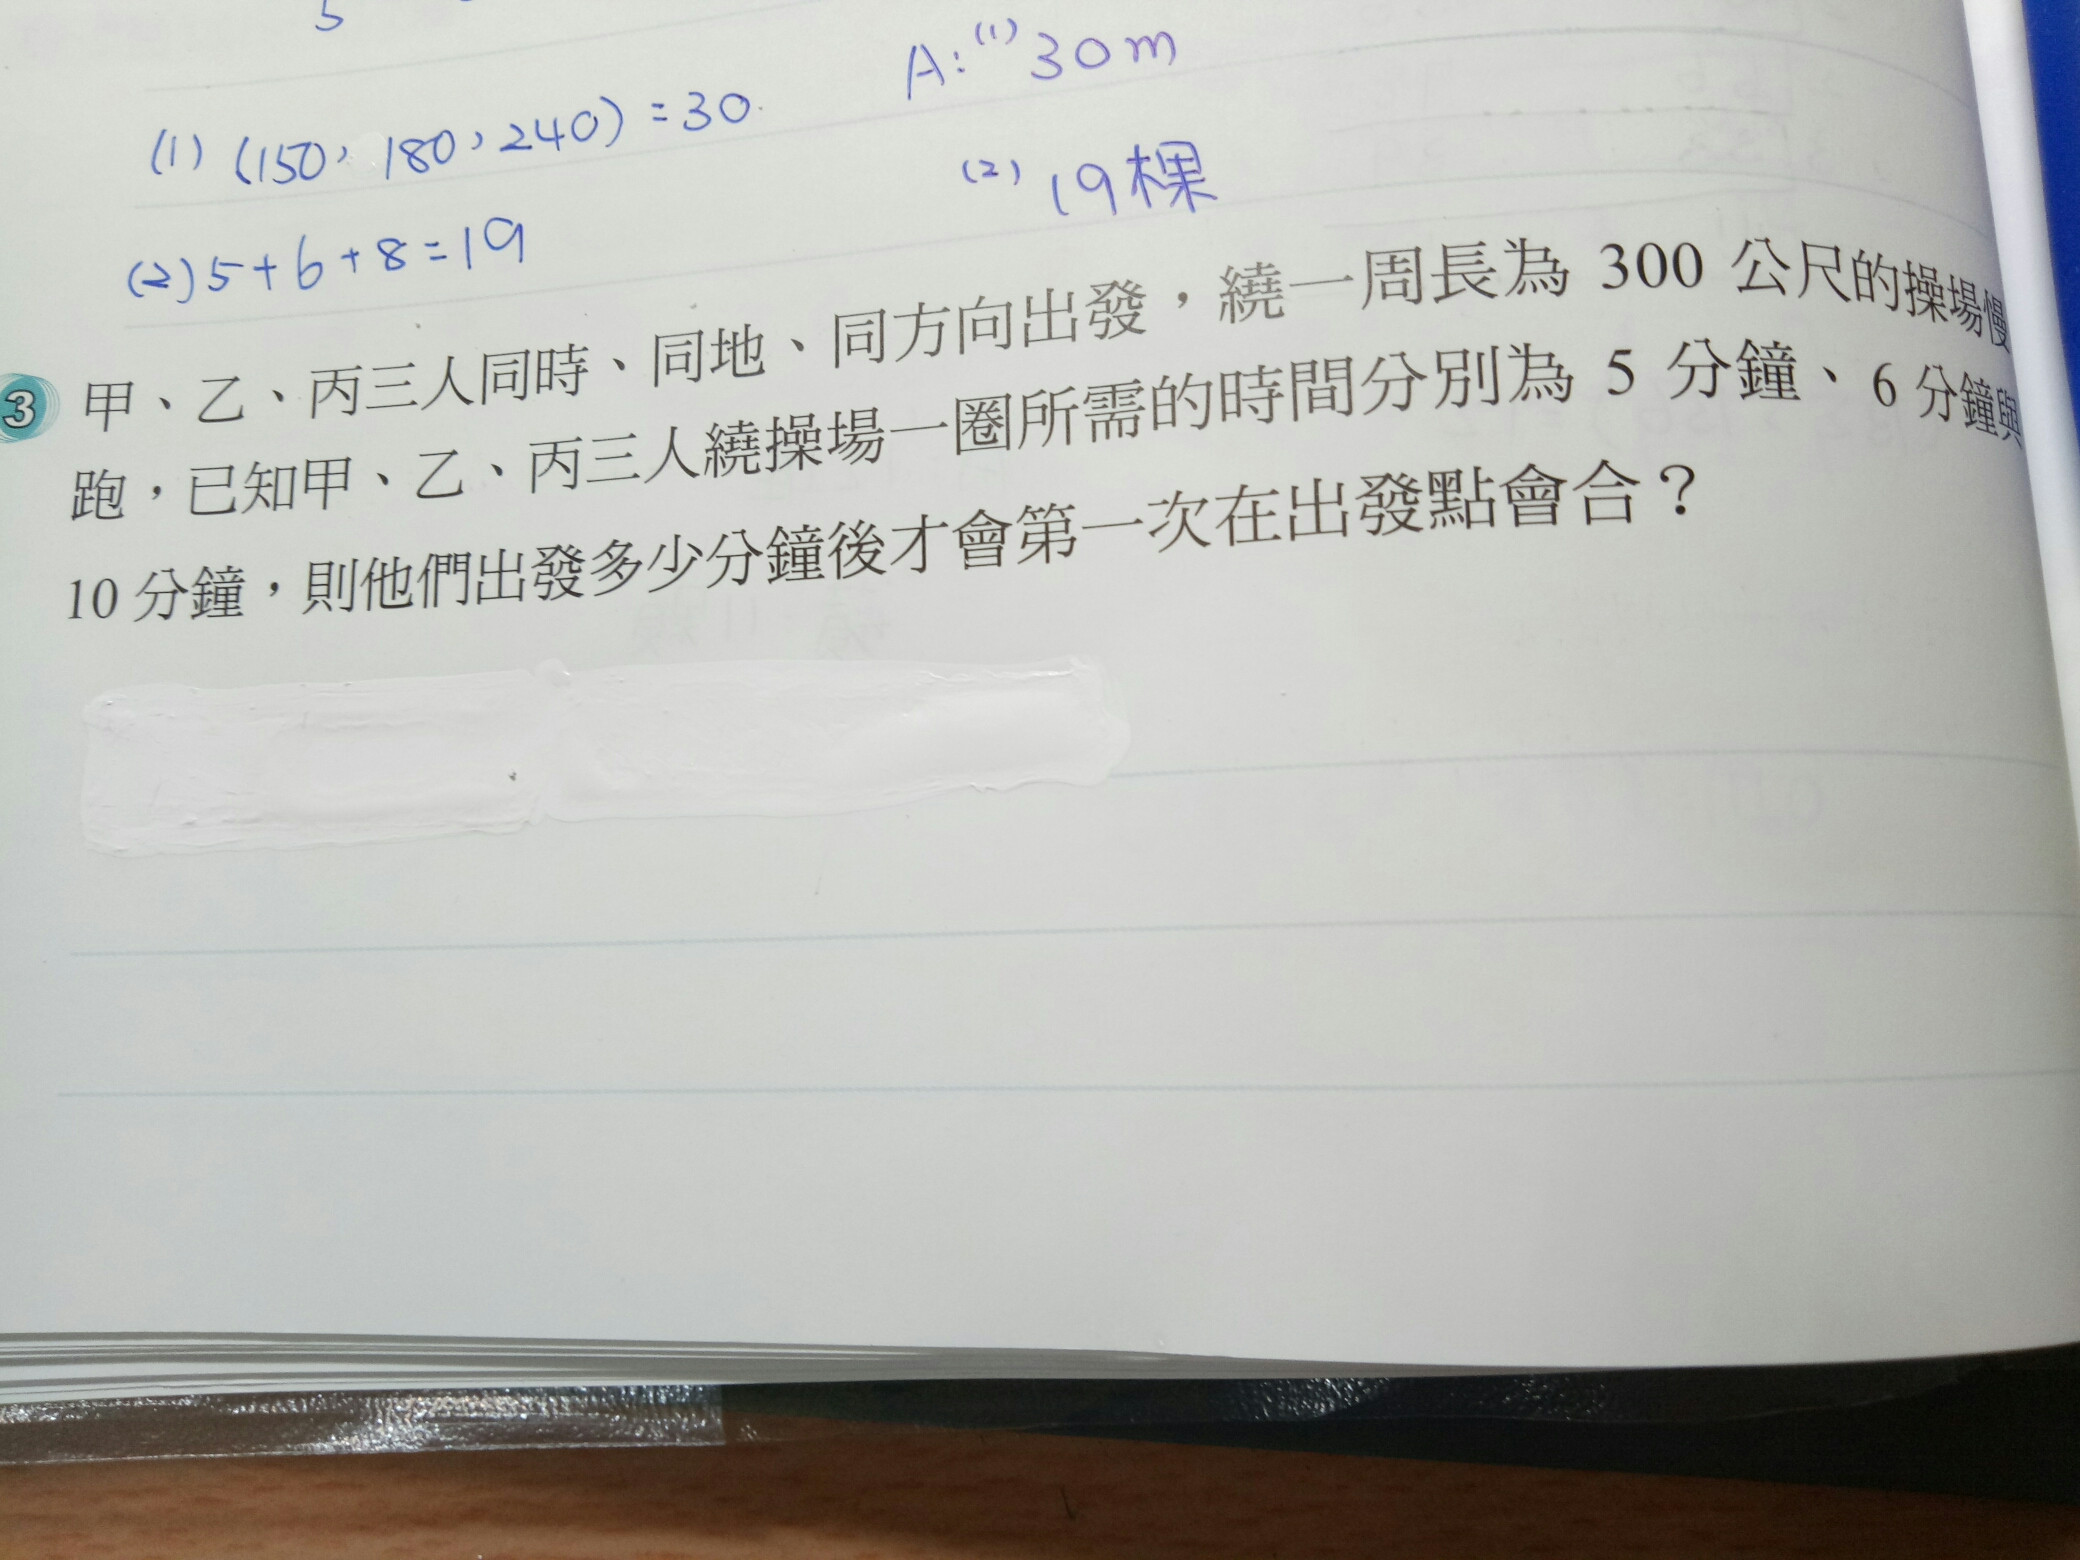 5
(1) (150, 180, 240) = 30
A: (1) 30m
(2) 5+6+8=19
(2) 19棵
3 甲、乙、丙三人同時、同地、同方向出發,繞一周長為 300 公尺的操場慢
跑,已知甲、乙、丙三人繞操場一圈所需的時間分別為 5 分鐘、6 分鐘與
10 分鐘,則他們出發多少分鐘後才會第一次在出發點會合?